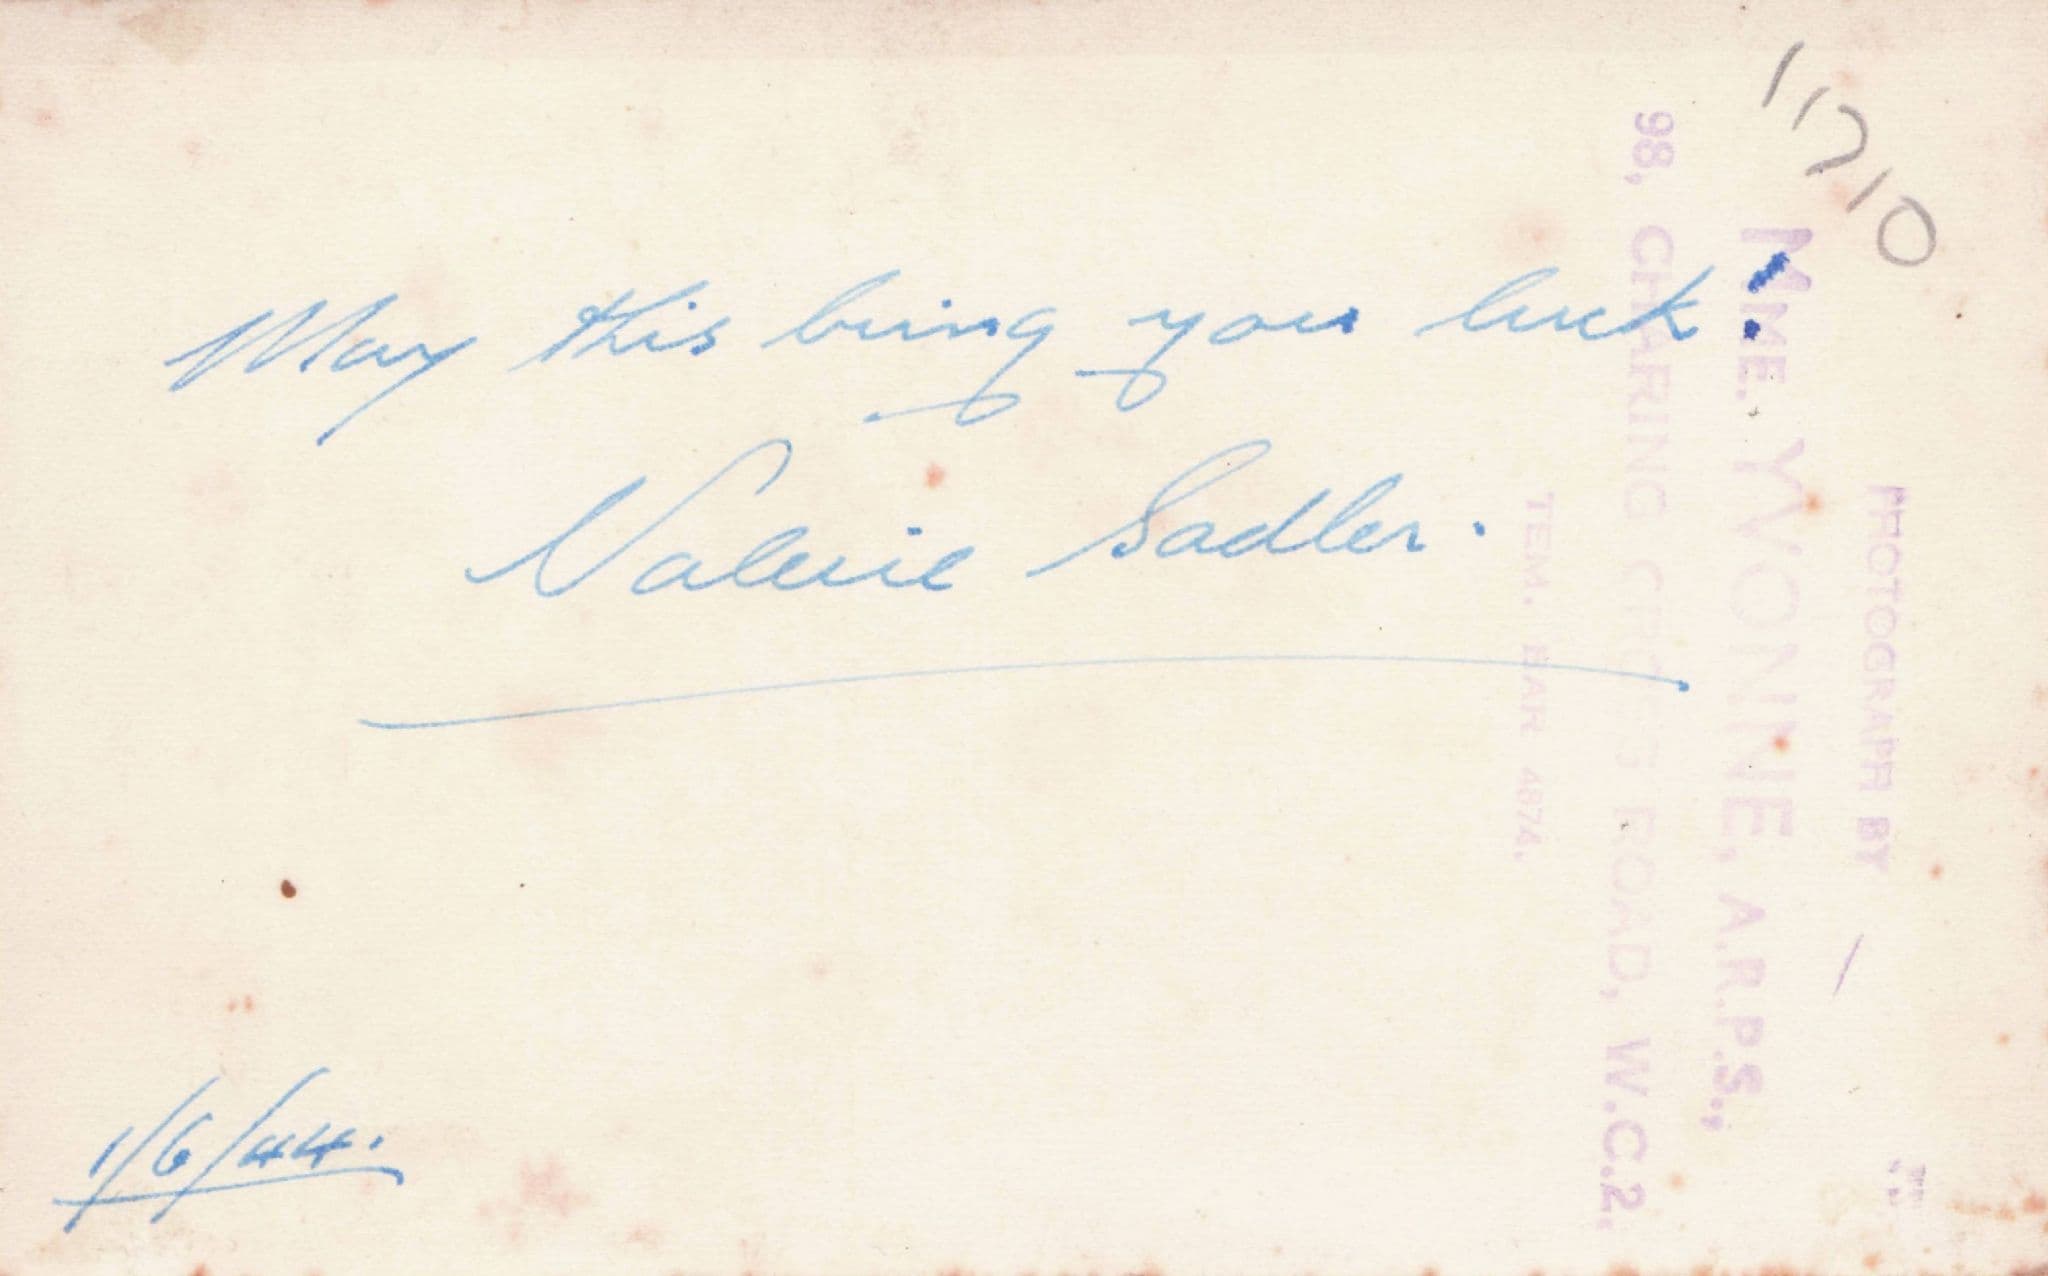 May this bring you luck!
Valerie Sadler.
1/6/44.
PHOTOGRAPH BY
MME. YVONNE, A.R.P.S.,
98, CHARING CROSS ROAD, W.C.2.
TEM. BAR 4874.